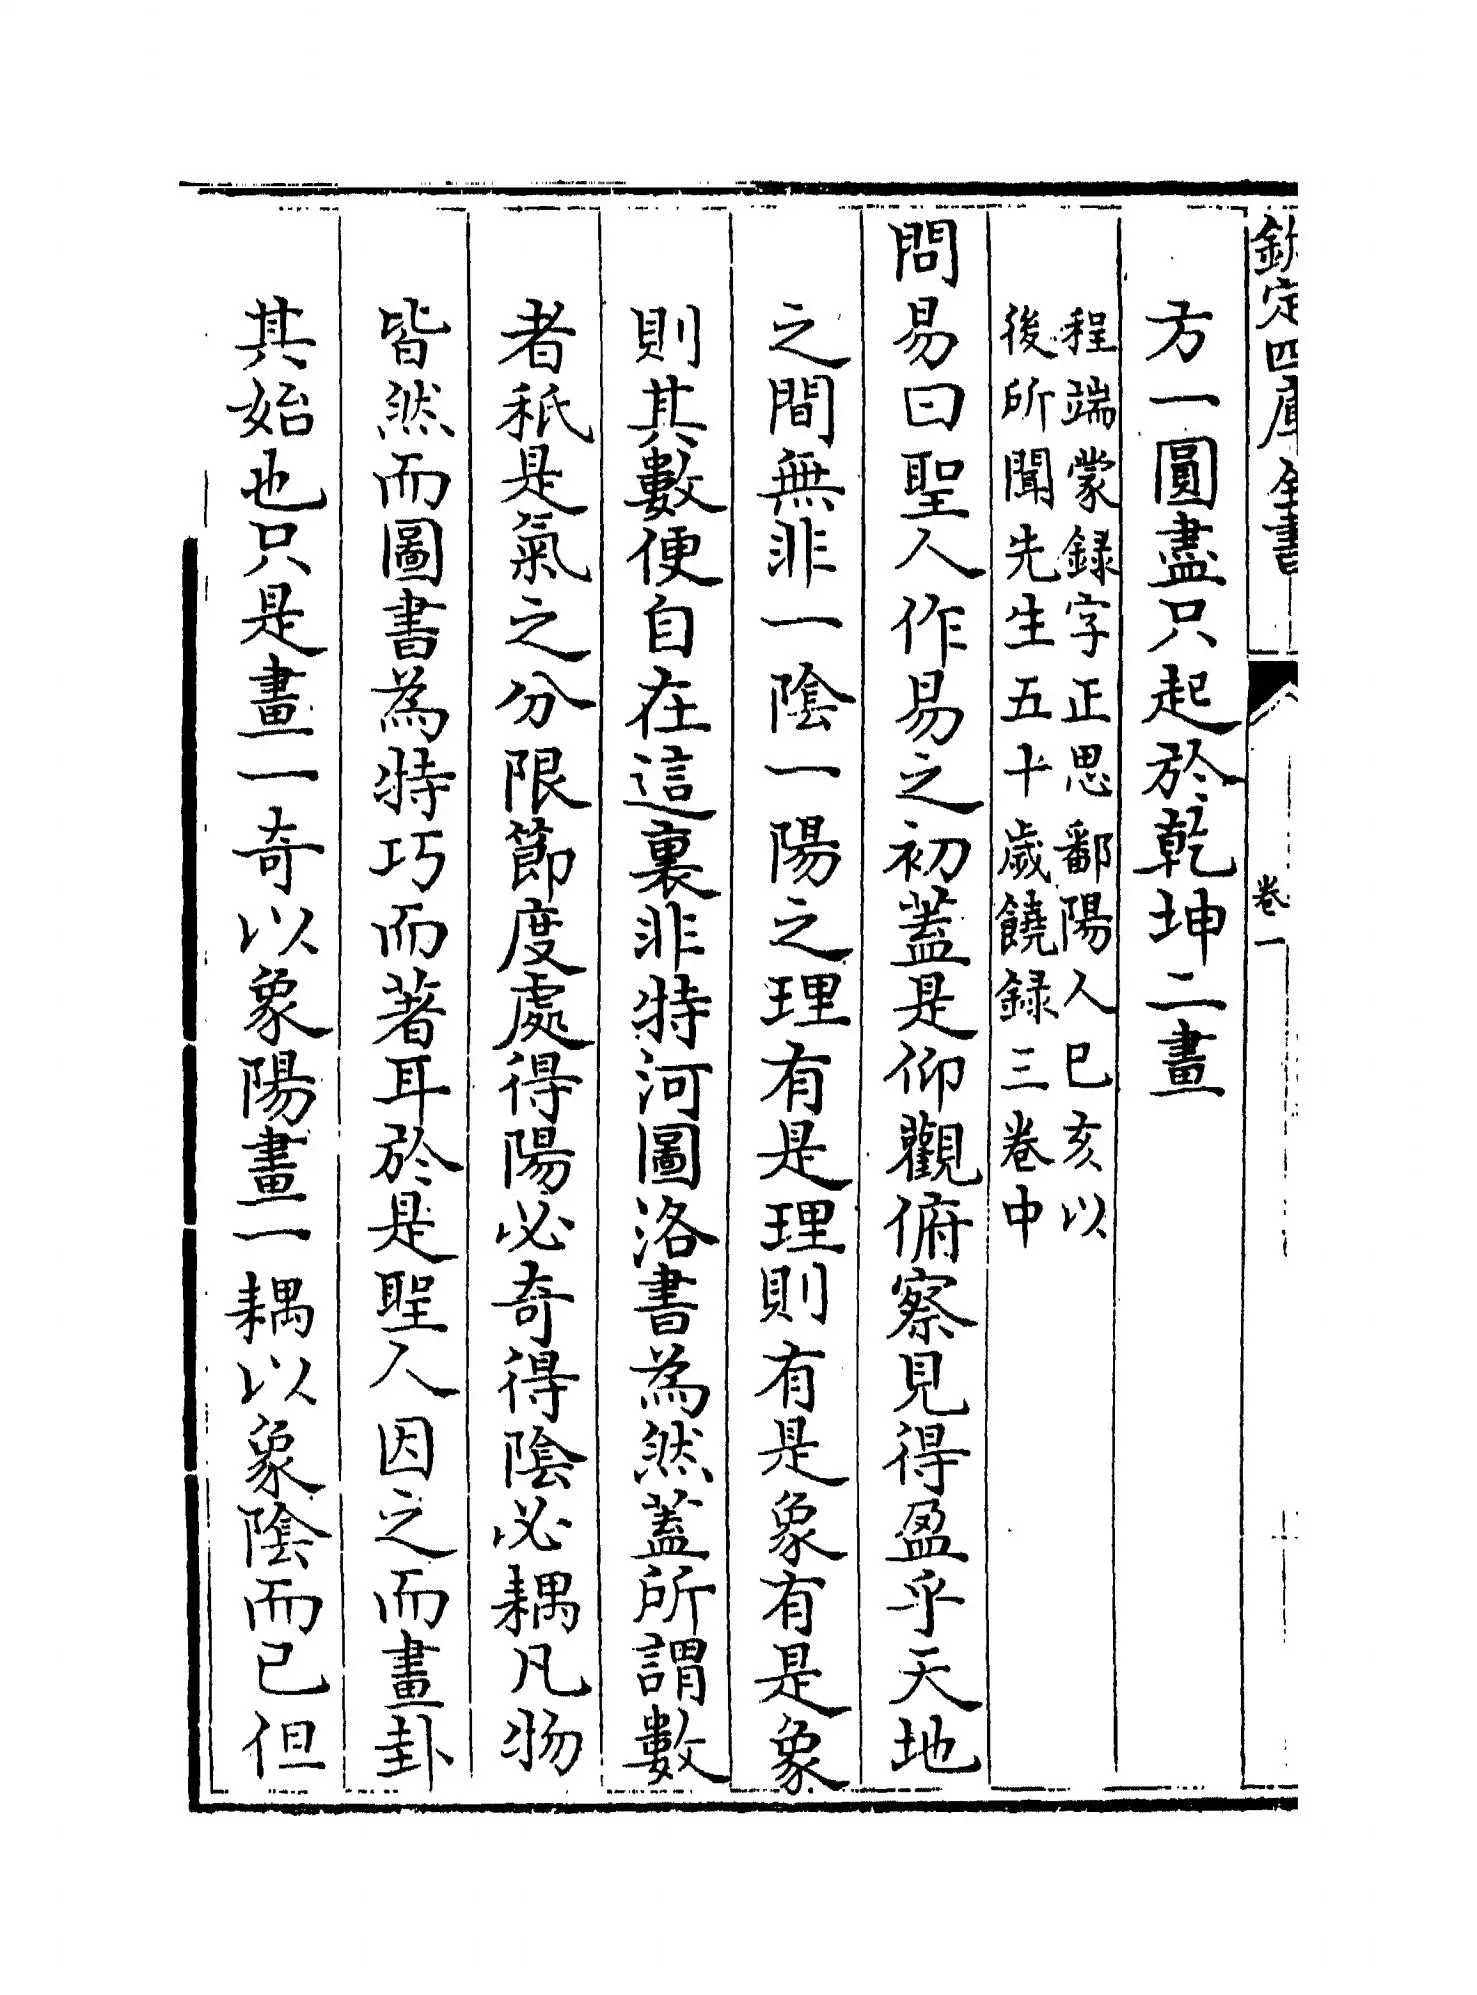 欽定四庫全書
卷一
方一圓盡只起於乾坤二畫
程端蒙録字正思鄱陽人已亥以
後所聞先生五十歲饒録三卷中
問易曰聖人作易之初蓋是仰觀俯察見得盈乎天地
之間無非一陰一陽之理有是理則有是象有是象
則其數便自在這裏非特河圖洛書為然蓋所謂數
者秖是氣之分限節度處得陽必奇得陰必耦凡物
皆然而圖書為特巧而著耳於是聖人因之而畫卦
其始也只是畫一奇以象陽畫一耦以象陰而已但